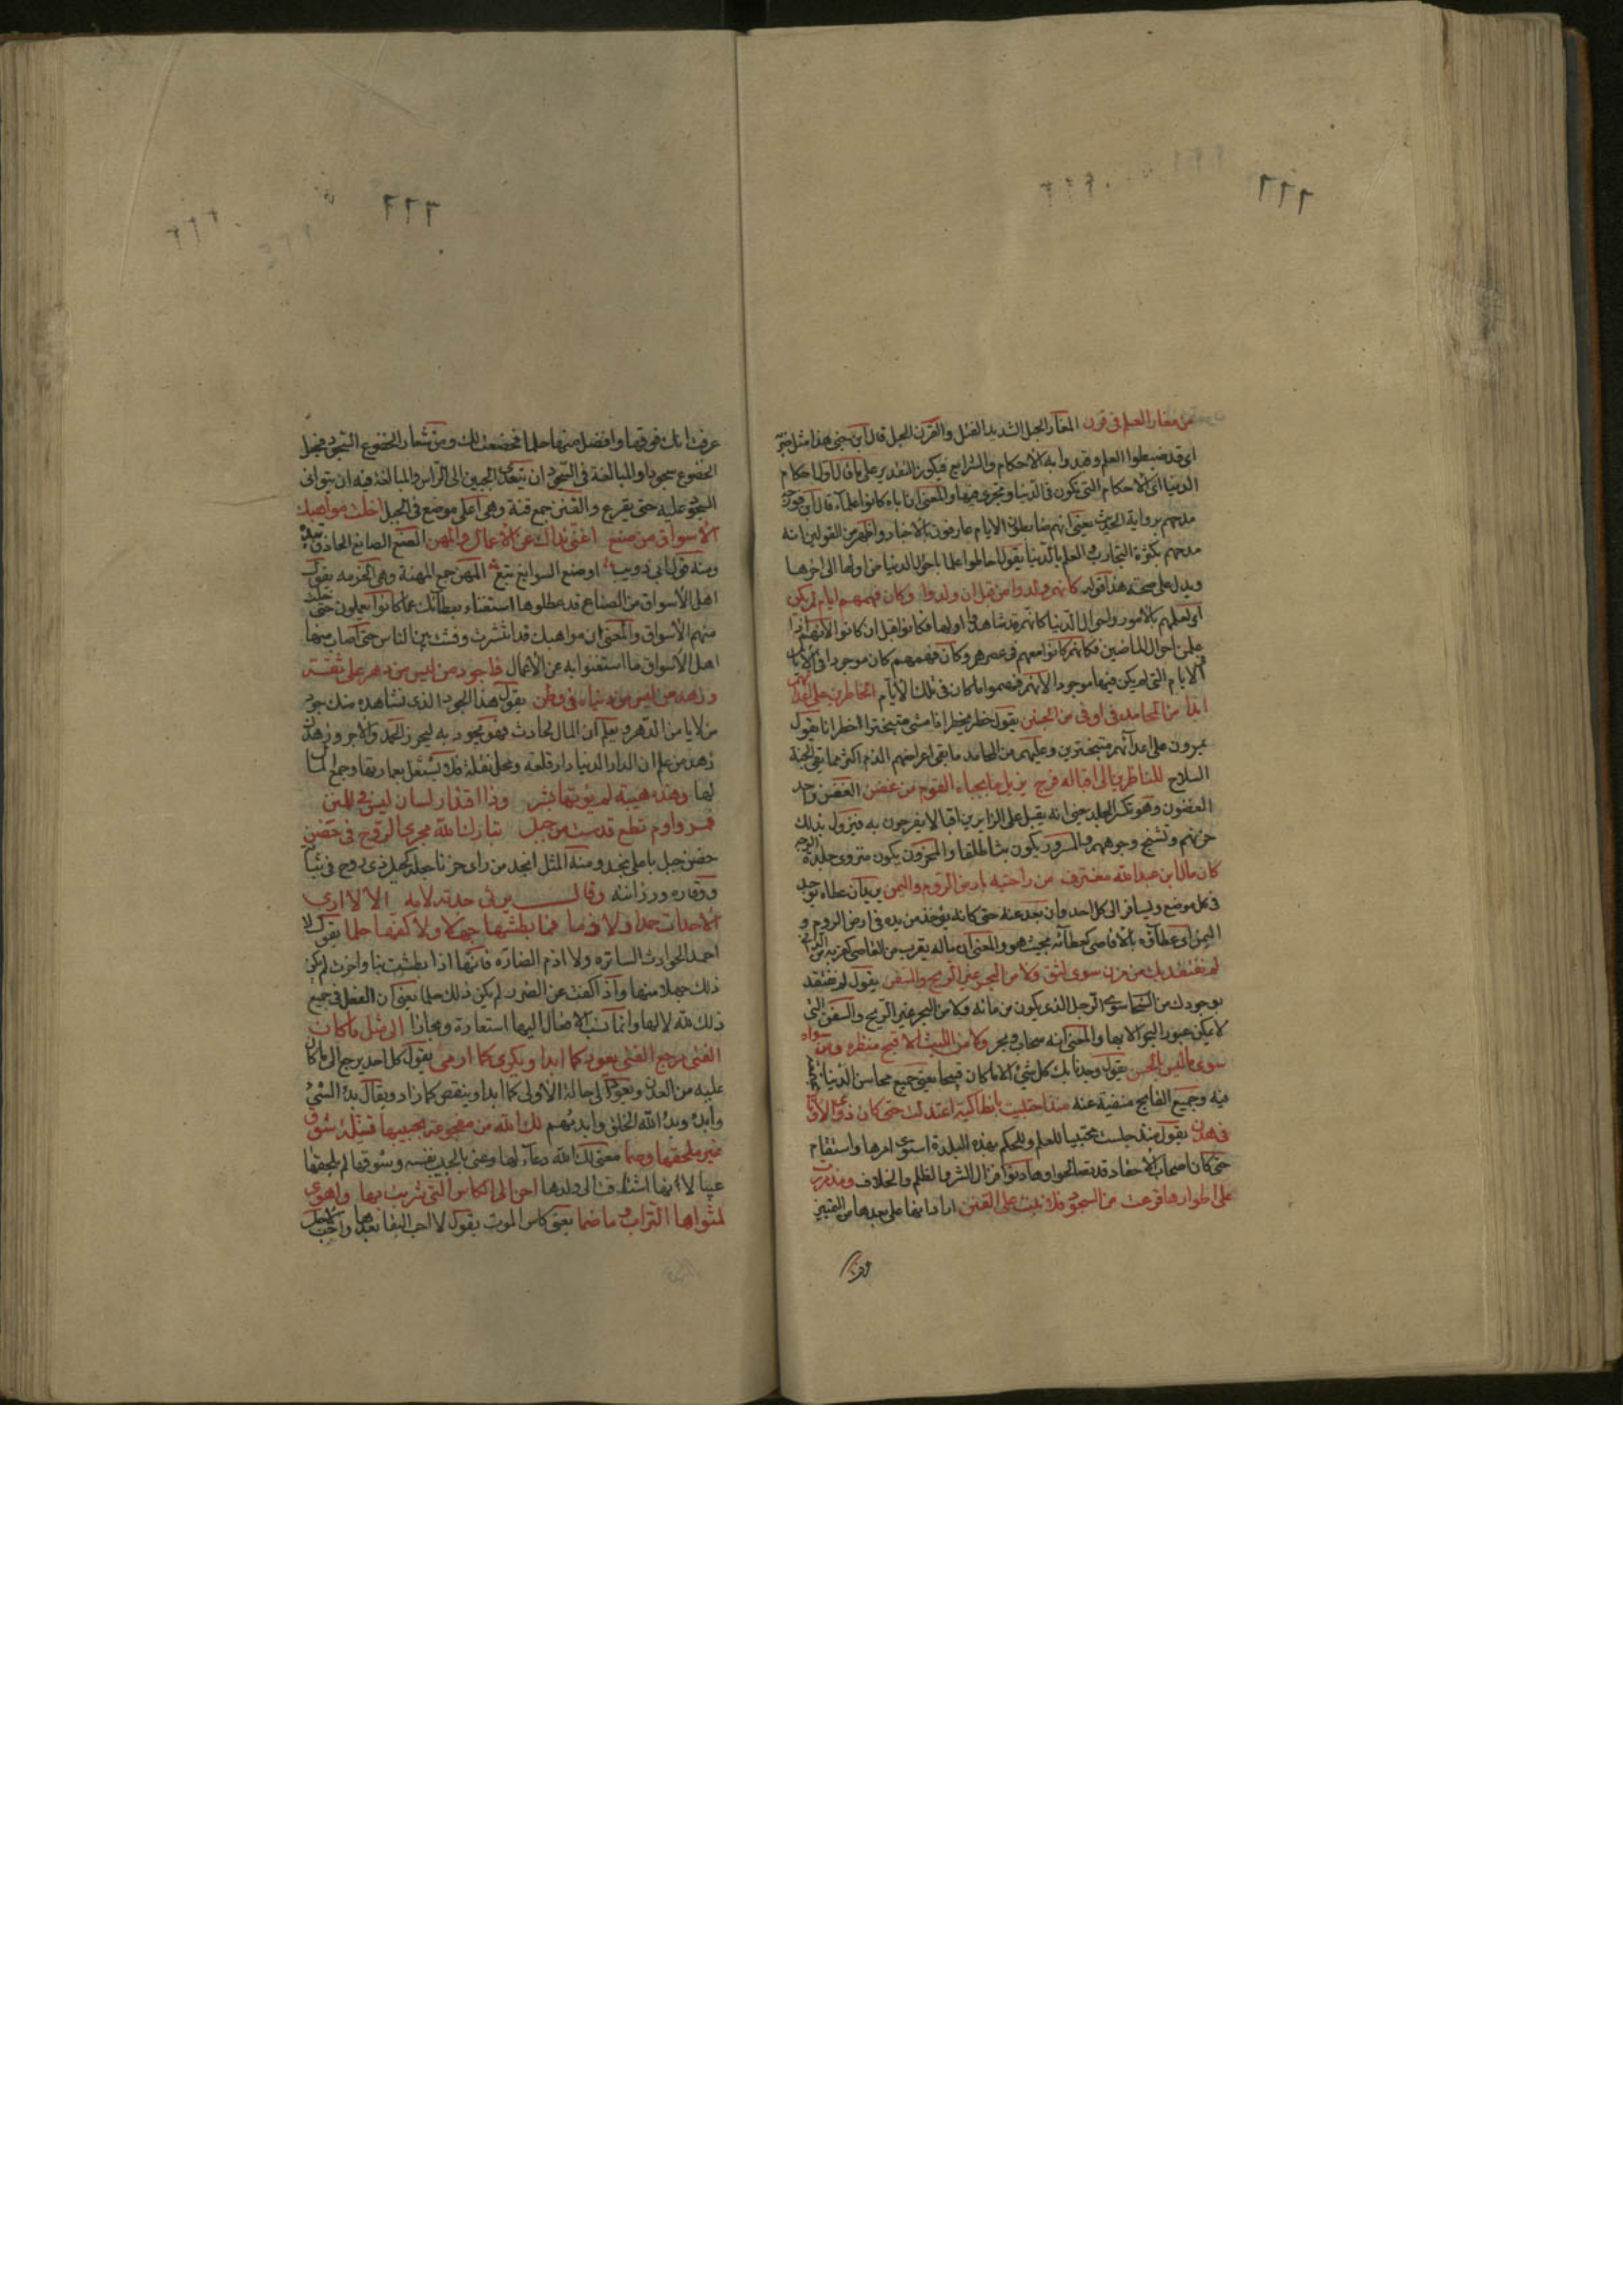 من مغار العلم فى قرن المغار الحبل الشديد الفتل والقرن الحبل قال ابن جنى هذا مثل ضربه
اى قد ضبطوا العلم وقيدوا به الاحكام والشرايع فيكون التقدير على ما قال اولى احكام
الدنيا اى الاحكام التى تكون فى الدنيا وتجرى فيها والمعنى ان اباه كانوا علماء قال ابن فورجه
مدحهم برواية الحديث يعنى انهم ضابطون الايام عارفون بالاخبار واظهر من القولين انه
مدحهم بكثرة التجارب والعلم بالدنيا يقول احاطوا علما باحوال الدنيا من اولها الى اخرها
ويدل على صحة هذا قوله كانهم ولدوا من قبل ان ولدوا وكان فهمهم ايام لم يكن
اى لعلمهم بالامور واحوال الدنيا كانهم قد شاهدوا اولها فكانوا قبل ان كانوا لانهم اذا
علموا احوال الماضين فكانهم كانوا معهم فى عصرهم وكان فهمهم كان موجودا فى
الايام التى لم يكن فيها موجودا لانهم فهموا ما كان فى تلك الايام الخاطرين على اعدائهم
ابدا من المحامد فى اوقى من الجنن يقول خطر يخطر اذا مشى متبخترا الخطرانا يقول
يمرون على اعدائهم متبخترين وعليهم من المحامد ما يقى اعراضهم الذم اكثر مما تقى الجنة
السلاح للناظرين الى اقباله فرح يزيل ما بجباه القوم من غضن الغضن واحد
الغضون وهو تكسر الجلد يعنى انه يقبل على الزايرين اقبالا يفرحون به فيزول بذلك
حزنهم وتشنج وجوههم والمسرور يكون بشا طلقا والمحزون يكون منزوى جلدة الوجه
كان مال ابن عبد الله مغترف من راحتيه بارض الروم واليمن يريد ان عطاه يوجد
فى كل موضع ويسافر الى كل احد وان بعد عنه حتى كانه يؤخذ من يده فى ارض الروم و
اليمن اى عطاؤه بالاقاصى كعطائه بحيث هو والمعنى ان ماله يقرب من القاصى كقربه من الدانى
لم نفتقد بك من مزن سوى لثق ولا من البحر غير الريح والسفن يقول لم نفتقد
بوجودك من السحاب سوى الوحل الذى يكون من مائه ولا من البحر غير الريح والسفن التى
لا يمكن عبور البحر الا بها والمعنى انه سحاب وبحر ولا من الليث الا قبح منظره ومن سواه
سوى ما ليس بالحسن يقول وجدنا بك كل شئ الا ما كان قبيحا يعنى جميع محاسن الدنيا
فيه وجميع القبايح منفية عنه منذ احتبيت بانطاكية اعتدلت حتى كان ذوى الاوتار
فى هدن يقول منذ جلست محتبيا للعلم وللحكم بهذه البلدة استوى امرها واستقام
حتى كان اصحاب الاحقاد قد تصالحوا وهادنوا فزال الشر والظلم والخلاف ومذ مررت
على اطوارها قرعت من السجود فلا نبت على القنن اراد انها على بعدها من التمييز
عرفت انك فوقها وافضل منها حلما فخضعت لك ومن شعار الخضوع السجود فجعل
الخضوع سجودا والمبالغة فى السجود ان يتعدى الجبين الى الراس والمبالغة فيه ان يتوالى
السجود عليه حتى يقرع والقنن جمع قنة وهى اعلى موضع فى الجبل اخلت مواهبك
الاسواق من صنع اغنى نداك عن الاعمال والمهن الصنع الصانع الحاذق بيده
ومنه قول ابى ذويب او صنع السوابغ تبع المهن جمع المهنة وهى الخدمه يقول
اهل الاسواق من الصناع قد عطلوها استغناء بعطائك عما كانوا يعملون حتى خلت
منهم الاسواق والمعنى ان مواهبك قد انتشرت وفشت بين الناس حتى اصاب منها
اهل الاسواق ما استغنوا به عن الاعمال فا جود من ليس من دهر على ثقة
وزهد من ليس من دنياه فى وطن يقول هذا الجود الذى نشاهده منك جود
من لا يامن الدهر ويعلم ان المال لحادث فهو يجود به ليحرز الحمد والاجر وزهدك
زهد من علم ان الدار الدنيا دار قلعة ومحل نقلة فلا يشتغل بعمارتها وجمع المال
لها وهذه هيبة لم يؤتها بشر وذا اقتدار لسان ليس فى المنن
فمر واوم تطع قدست من جبل تبارك الله مجرى الروح فى حضن
حضن جبل باعلى نجد ومنه المثل انجد من راى حضنا جعله كجبل ذى روح فى ثباته
ووقاره ورزانته وقال يرثى جدته لامه الا لا ارى
الاحداث حمدا ولا ذما فما بطشها جهلا ولا كفها حلما يقول لا
احمد الحوادث الساره ولا اذم الضاره فانها اذا بطشت بنا واضرت لم يكن
ذلك جهلا منها واذا كفت عن الضرر لم يكن ذلك حلما يعنى ان الفعل فى جميع
ذلك لله لا لها وانما تنسب الافعال اليها استعارة ومجازا الى مثل ما كان
الفتى مرجع الفتى يعود كما ابدا ويكرى كما ارمى يقول كل احد يرجع الى ما كان
عليه من العدم ويعود الى حالة الاولى كما ابدا وينقص كما زاد ويقال بدا الشئ
وابدء وبدء الله الخلق وابدئهم لك الله من مفجوعة بحبيبها قتيلة شوق
غير ملحقها وصما معنى لك الله دعاء لها وعنى بالحبيب نفسه وشوقها لم يلحقها
عيبا لانها اشتاقت الى ولدها احن الى الكاس التى شربت بها واهوى
لمثواها التراب وما ضما يعنى كاس الموت يقول لا احب البقا بعدها واحب لاجل